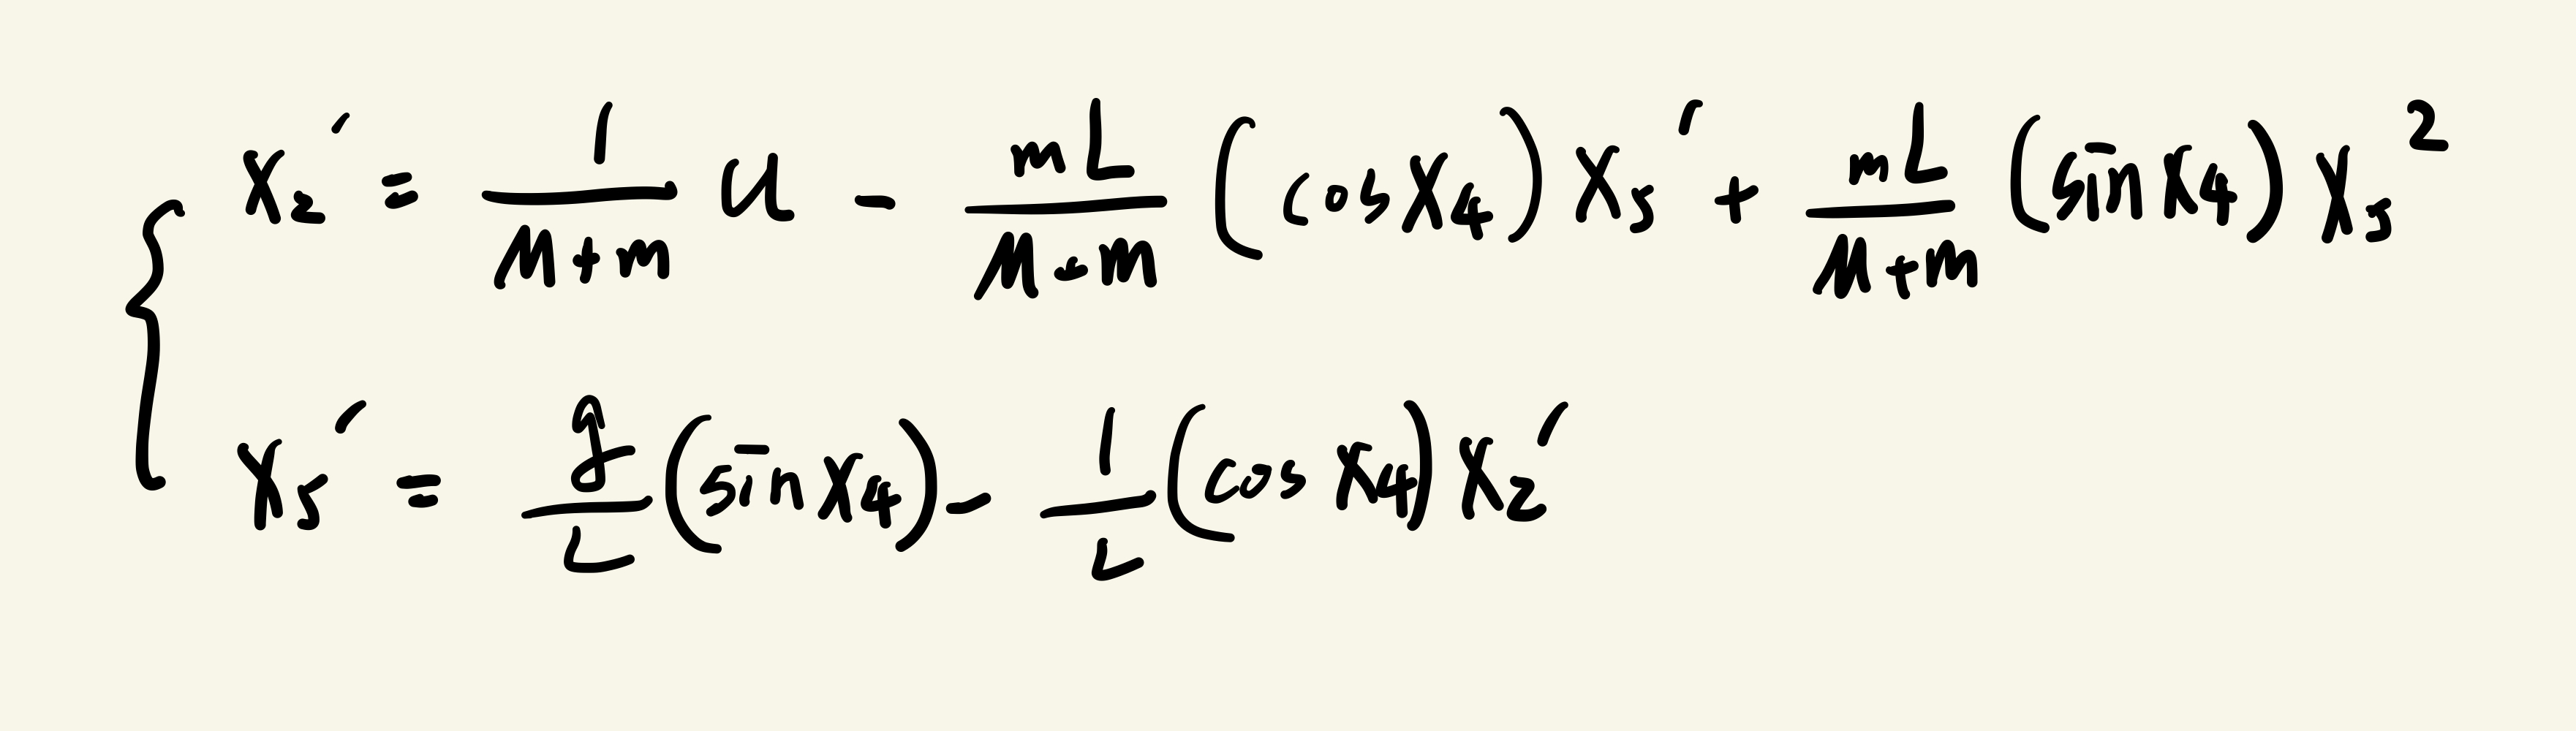 x₂′ = 1/(M+m) u - mL/(M+m) (cos x₄) x₅′ + mL/(M+m) (sin x₄) x₅²
x₅′ = g/L (sin x₄) - 1/L (cos x₄) x₂′